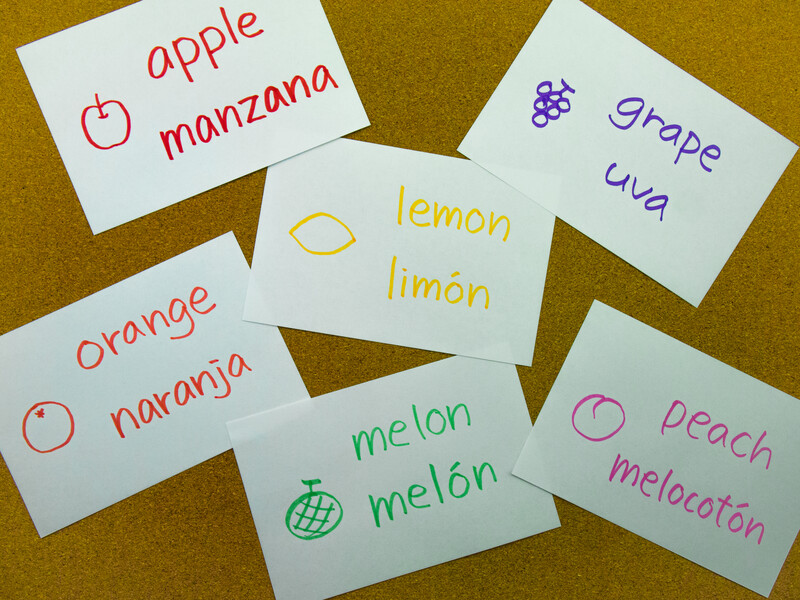 apple
manzana
grape
uva
lemon
limón
orange
naranja
melon
melón
peach
melocotón